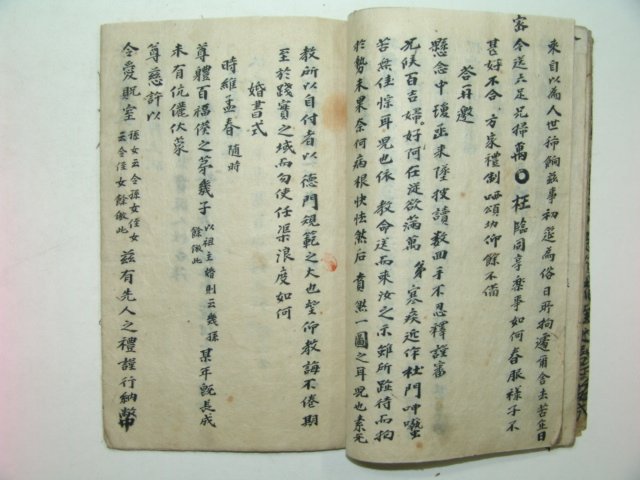 來自以為人世稀餉玆事初筵為俗日所拘遷爾舍去苦企日
客令送去足兄掃萬〇枉臨同享樂事如何春服樣子不
甚好不合方家禮制哂頌功仰餘不備
答再邀
懸念中瓊函來墜披讀數四手不忍釋謹審
兄候百吉婦好何等從欲滿萬弟寒疾近作杜門呻囈
苦無佳悰耳兄也依教命送而來汝之示雖所跂待而拘
於勢未果奈何病根快怯然后賁然一圖之耳兄也素无
教所以自付者以德門規範之大也望仰教誨不倦期
至於踐實之域而勿使任渠浪度如何
婚書式
時維孟春 隨時
尊體百福僕之第幾子 以祖主婚則云幾孫 餘倣此 某年旣長成
未有伉儷伏蒙
尊慈許以
令愛貺室 孫女云令孫女侄女 云令侄女餘倣此 玆有先人之禮謹行納幣